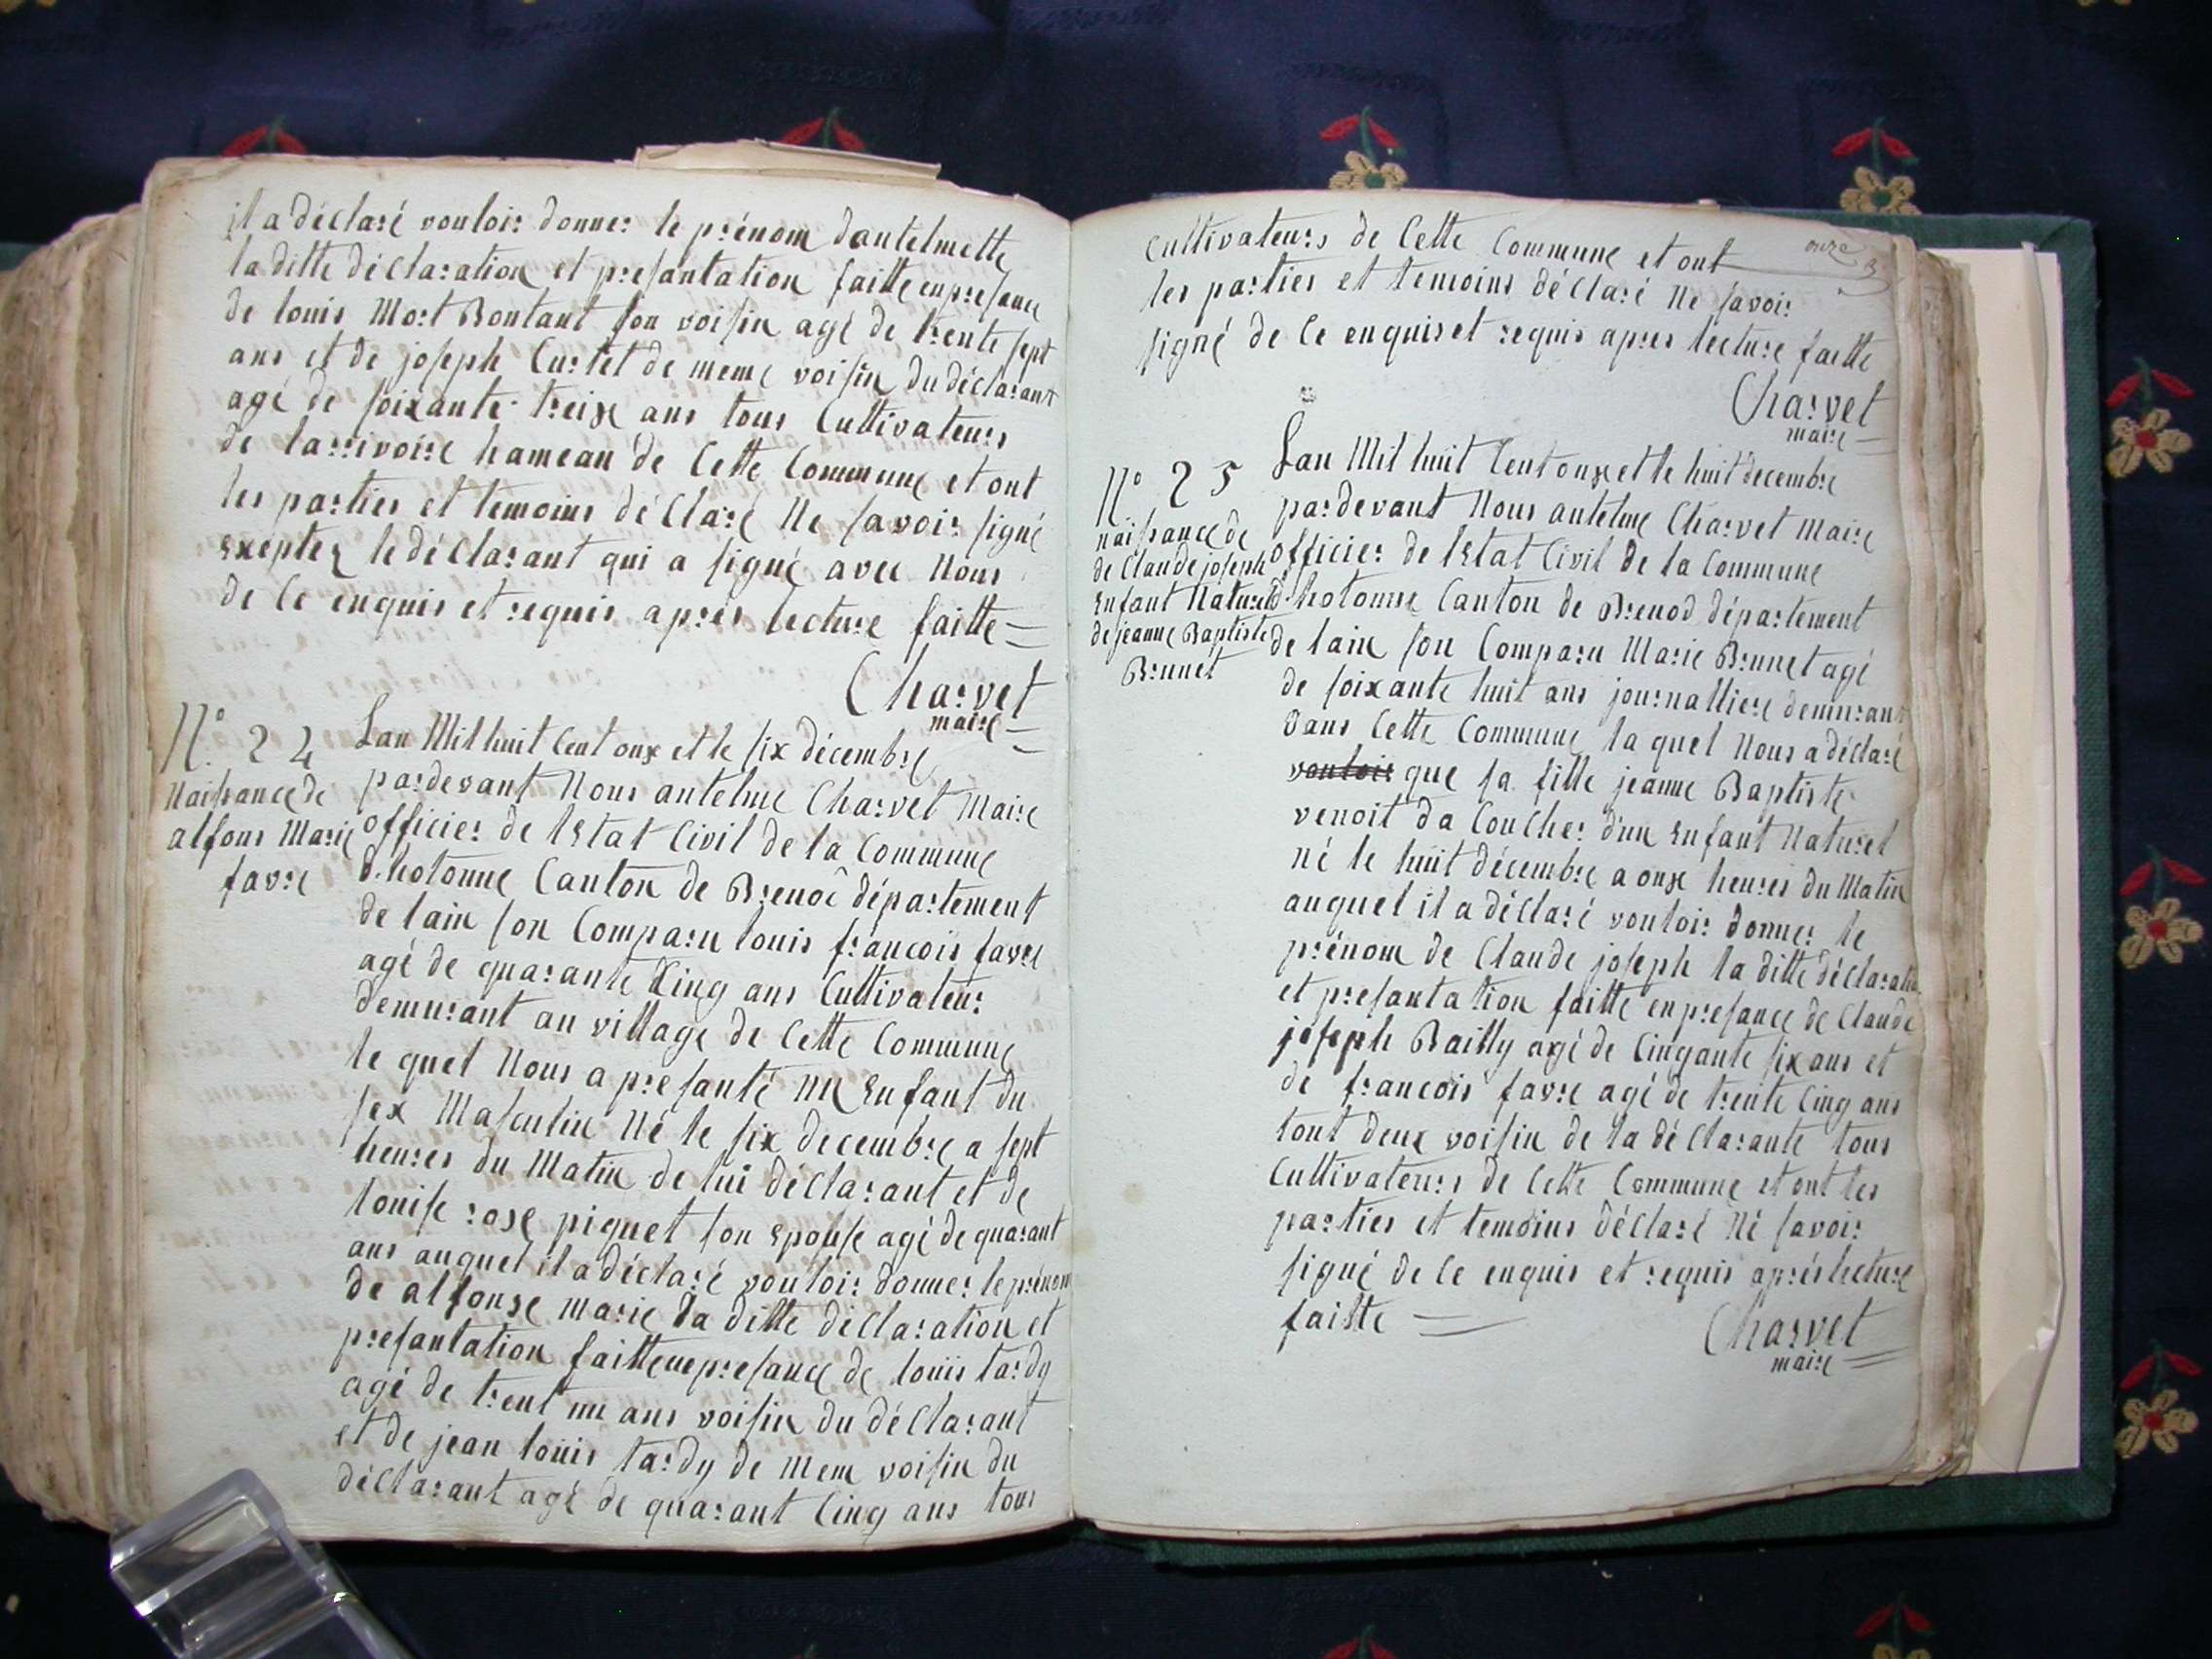 il a déclaré vouloir donner le prénom dantelmette
la ditte déclaration et presantation faitte en presance
de louis Mort Bontant son voisin agé de trente sept
ans et de joseph Curtet de meme voisin du déclarant
agé de soixante treize ans tous Cultivateurs
de larrivoire hameau de Cette Commune et ont
les parties et temoins déClaré Ne savoir signé
exeptez le déClarant qui a signé avec Nous
de Ce enquis et requis après lecture faitte
Charvet
maire
N.° 24
Naissance de
alfons Marie
favre
Lan Mil huit Cent onze et le six décembre
pardevant Nous antelme Charvet Maire
officier de lEtat Civil de la Commune
d.hotonne Canton de Brenod département
de lain son Comparu louis francois favre
agé de quarante Cinq ans Cultivateur
demurant au village de Cette Commune
le quel Nous a presanté un Enfant du
sex Masculin Né le six decembre a sept
heures du Matin de lui déClarant et de
louise rose piquet son Epouse agé de quarant
ans auquel il a déclaré vouloir donner le prénom
de alfonse marie la ditte déClaration et
presantation faitte en presance de louis tardy
agé de trent un ans voisin du déClarant
et de jean louis tardy de Mem voisin du
déClarant agé de quarant Cinq ans tous
onze
Cultivateurs de Cette Commune et ont
les parties et temoins déClaré Ne savoir
signé de Ce enquis et requis apres lecture faitte
Charvet
maire
N° 25
naissance de
de Claude joseph
Enfant Naturel
de jeanne Baptiste
Brunet
Lan Mil huit Cent onze et le huit decembre
pardevant Nous antelme Charvet Maire
officier de lEtat Civil de la Commune
d.hotonne Canton de Brenod département
de lain son Comparu Marie Brunet agé
de soixante huit ans journalliere demurant
dans Cette Commune la quel Nous a déclaré
vouloir que sa fille jeanne Baptiste
venoit da Coucher d'un Enfant Naturel
né le huit décembre a onze heures du Matin
auquel il a déClaré vouloir donner le
prénom de Claude joseph la ditte déclaration
et presantation faitte en presance de Claude
joseph Bailly agé de Cinqante six ans et
de francois favre agé de trente Cinq ans
tout deux voisin de la déClarante tous
Cultivateurs de Cette Commune et ont les
parties et temoins déClaré Né savoir
signé de Ce enquis et requis après lecture
faitte
Charvet
maire